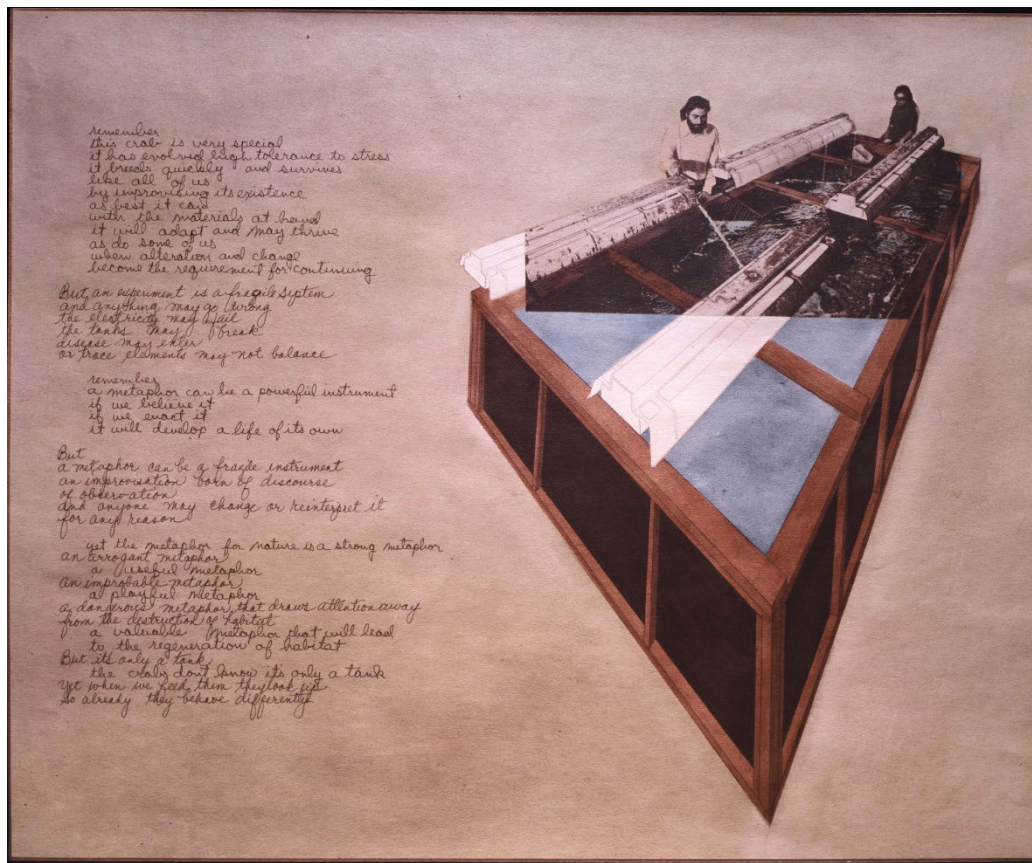 remember
this crab is very special
it has evolved high tolerance to stress
it breeds quickly and survives
like all of us
by improvising its existence
as best it can
with the materials at hand
it will adapt and may thrive
as do some of us
when alteration and change
become the requirement for continuing
But, an experiment is a fragile system
and anything may go wrong
the electricity may fail
the tanks may break
disease may enter
or trace elements may not balance
remember
a metaphor can be a powerful instrument
if we believe it
if we enact it
it will develop a life of its own
But
a metaphor can be a fragile instrument
an improvisation born of discourse
of observation
and anyone may change or reinterpret it
for any reason
yet the metaphor for nature is a strong metaphor
an arrogant metaphor
a useful metaphor
an improbable metaphor
a playful metaphor
a dangerous metaphor that draws attention away
from the destruction of habitat
a valuable metaphor that will lead
to the regeneration of habitat
But its only a tank
the crabs don't know its only a tank
yet when we feed them they look up
so already they behave differently